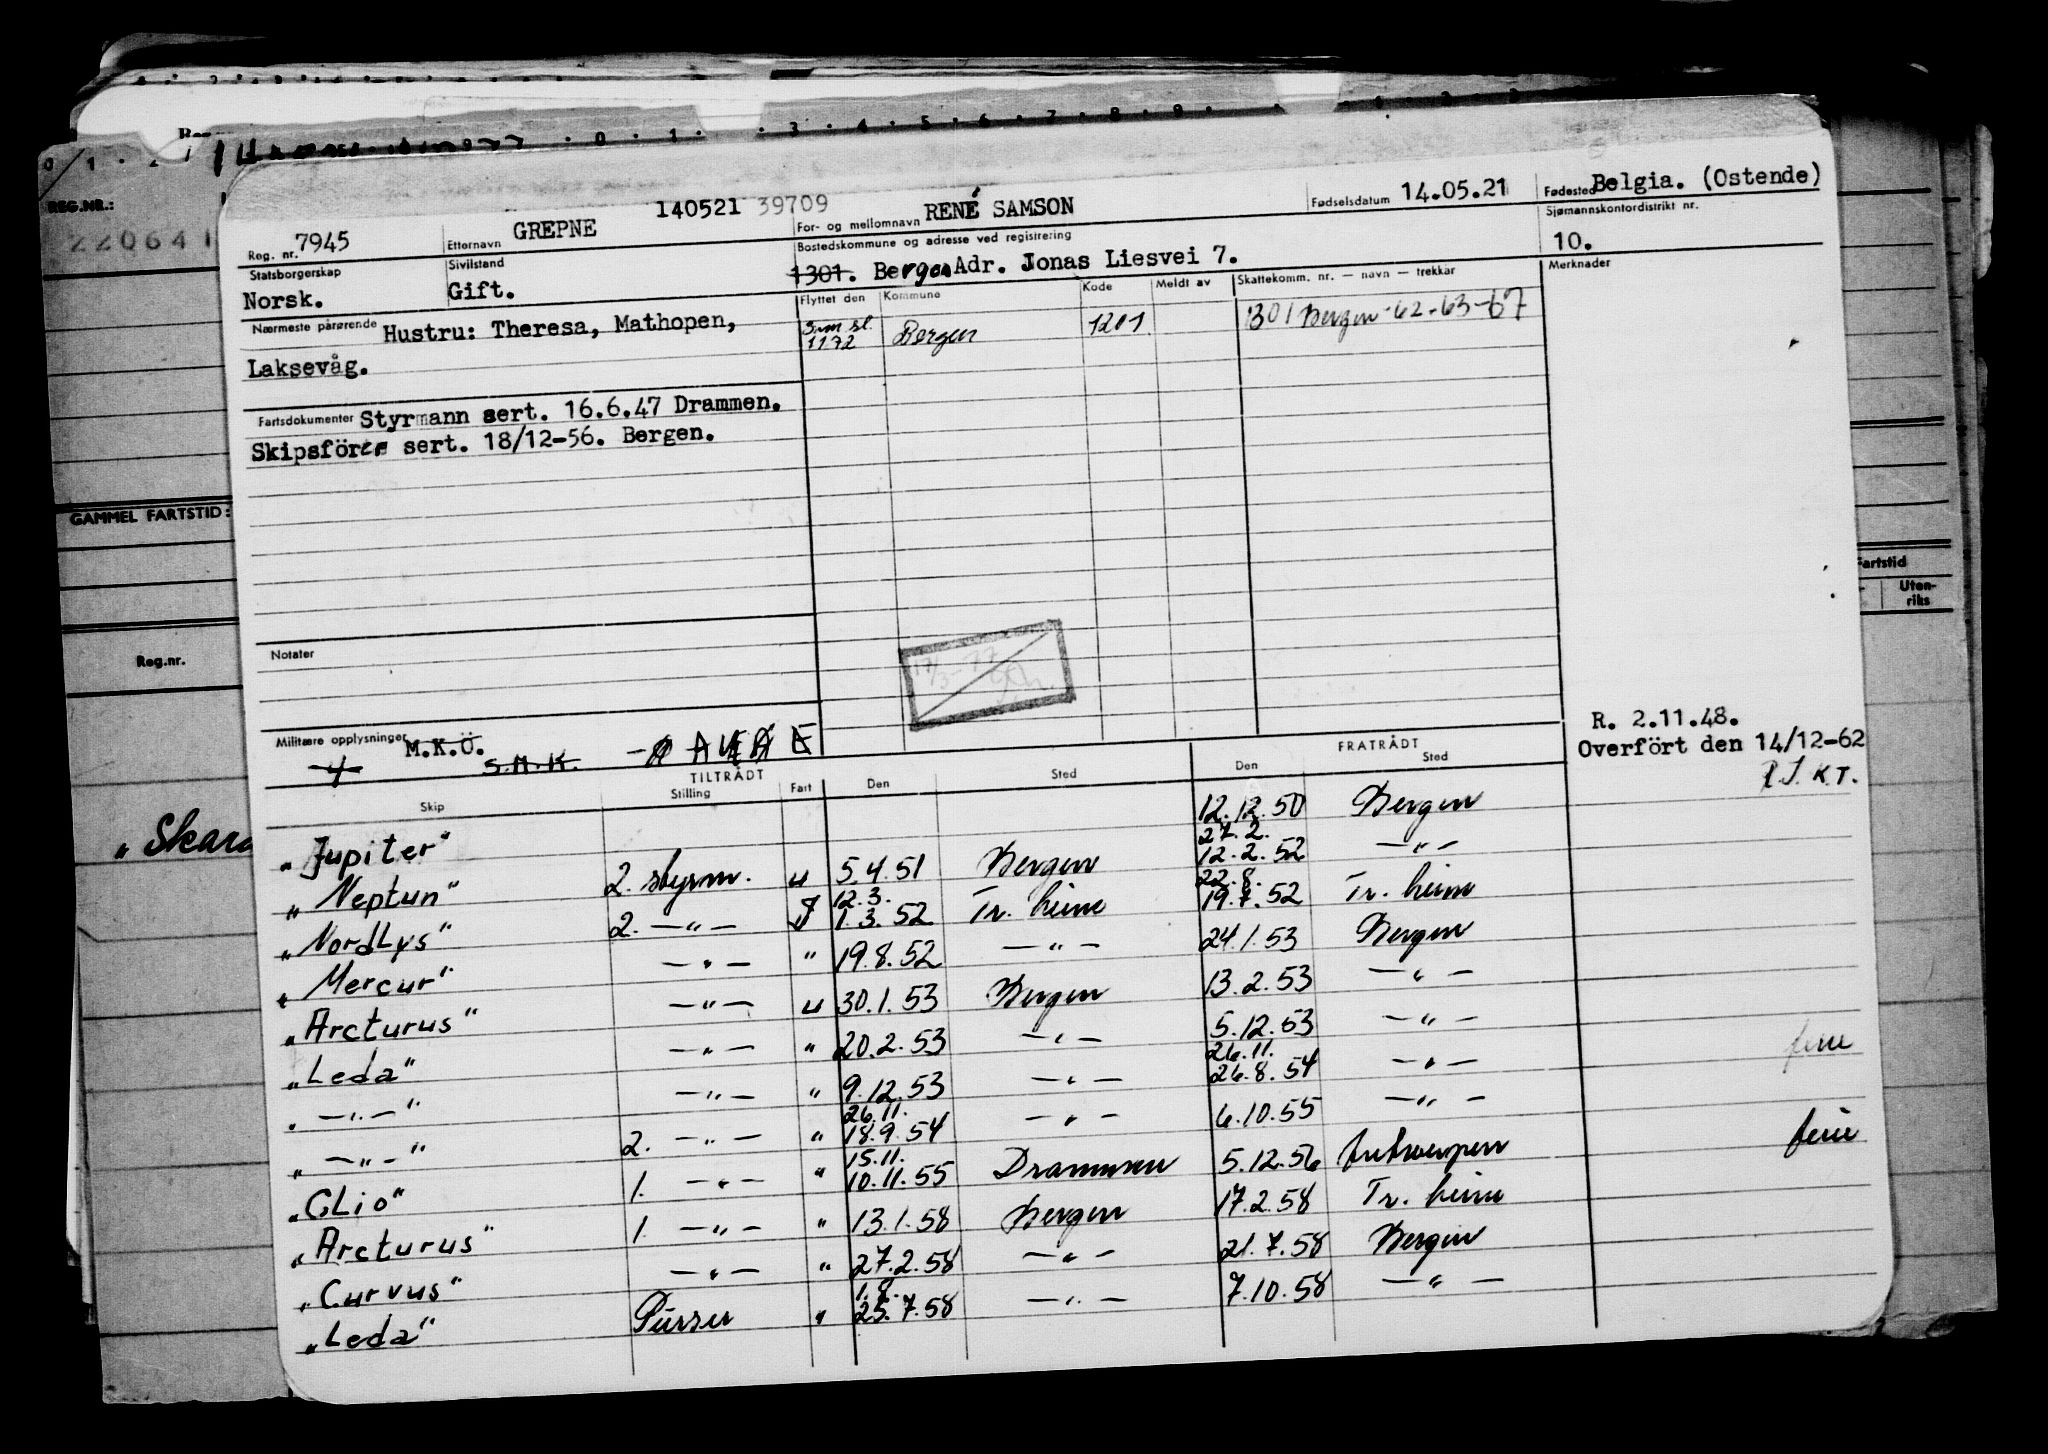 REG.NR.:
220641
GAMMEL FARTSTID:
Reg.nr.
"Skar
Fartstid
Uten-
riks
140521 39709
Reg. nr. 7945 Etternavn GREPNE For- og mellomnavn RENÉ SAMSON Fødselsdatum 14.05.21 Fødested Belgia. (Ostende)
Statsborgerskap Norsk. Sivilstand Gift. Bostedskommune og adresse ved registrering 1301. Bergen Adr. Jonas Liesvei 7. Sjømannskontordistrikt nr. 10.
Nærmeste pårørende Hustru: Theresa, Mathopen,
Laksevåg.
Flyttet den Kommune Kode Meldt av Skattekomm. nr. — navn — trekkår Merknader
1172 Bergen 1201 301 Bergen 62-63-67
Fartsdokumenter Styrmann sert. 16.6.47 Drammen.
Skipsförer sert. 18/12-56. Bergen.
Notater
Militære opplysninger M.K.Ö. S.M.K.
R. 2.11.48.
Overfört den 14/12-62
K.T.
TILTRÅDT FRATRÅDT
Skip Stilling Fart Den Sted Den Sted
"Jupiter" 12.12.50 Bergen
27.2.
"Neptun" 2. styrm. u 5.4.51 Bergen 12.2.52 —"—
12.3. 22.8.
"NordLys" 2. —"— 1.3.52 Tr. heim 19.7.52 Tr. heim
"Mercur" —"— " 19.8.52 —"— 24.1.53 Bergen
"Arcturus" —"— u 30.1.53 Bergen 13.2.53 —"—
"Leda" —"— " 20.2.53 —"— 5.12.53 —"—
26.11.
"—"—" —"— " 9.12.53 —"— 26.8.54 —"— ferie
26.11.
"—"—" 2. —"— " 18.9.54 —"— 6.10.55 —"—
15.11.
"CLio" 1. —"— " 10.11.55 Drammen 5.12.56 Antwerpen ferie
"Arcturus" 1. —"— " 13.1.58 Bergen 17.2.58 Tr. heim
"Curvus" —"— " 27.2.58 —"— 21.7.58 Bergen
1.8.
"Leda" Purser " 25.7.58 —"— 7.10.58 —"—